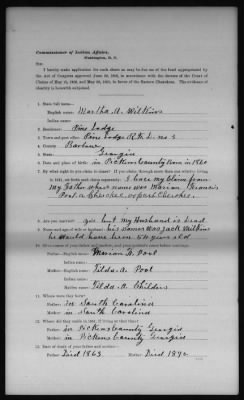 Commissioner of Indian Affairs,
Washington, D. C.
Sir:
I hereby make application for such share as may be due me of the fund appropriated by
the Act of Congress approved June 30, 1906, in accordance with the decrees of the Court
of Claims of May 18, 1905, and May 28, 1906, in favor of the Eastern Cherokees. The evidence of
identity is herewith subjoined.
1. State full name—
English name: Martha. A. Wilkins
Indian name:
2. Residence: Pine Lodge
3. Town and post office: Pine Lodge R.F.D. no 3
4. County:
5. State: Georgia
6. Date and place of birth: in Pickins County Born in
7. By what right do you claim to share? If you claim through more than one relative living
in 1851, set forth each claim separately: I have my Claim from
my Father whose name was Marion Francis
Pool a Cherokee or part Cherokee.
8. Are you married? yes but my Husband is dead
9. Name and age of wife or husband: his name was Jack Wilkins
he Would have been 54 years old
10. Give names of your father and mother, and your mother's name before marriage.
Father—English name: Marion F. Pool
Indian name:
Mother—English name: Tilda. A. Pool
Indian name:
Maiden name: Tilda. A. Childers
11. Where were they born?
Father: in South Carolina
Mother: in South Carolina
12. Where did they reside in 1851, if living at that time?
Father: in Pickins County Georgia
Mother: in Pickins County Georgia
13. Date of death of your father and mother—
Father: Died 1863 Mother: Died 1892